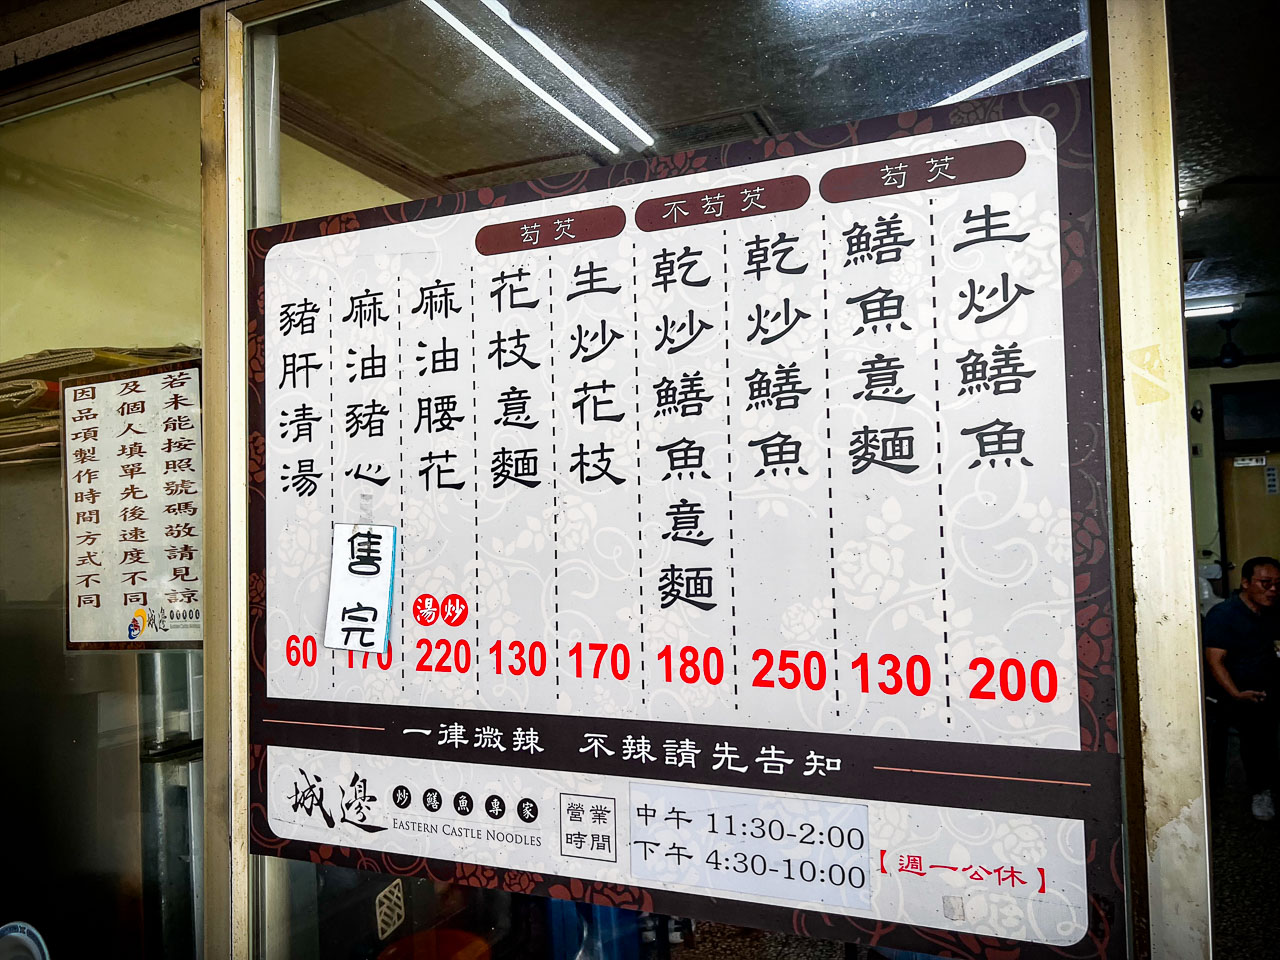 勾芡
生炒鱔魚
200
鱔魚意麵
130
不勾芡
乾炒鱔魚
250
乾炒鱔魚意麵
180
勾芡
生炒花枝
170
花枝意麵
130
麻油腰花
湯炒
220
麻油豬心
售完
170
豬肝清湯
60
一律微辣 不辣請先告知
城邊 炒鱔魚專家
EASTERN CASTLE NOODLES
營業
時間
中午 11:30-2:00
下午 4:30-10:00
【週一公休】
若未能按照號碼敬請見諒
及個人填單先後速度不同
因品項製作時間方式不同
城邊